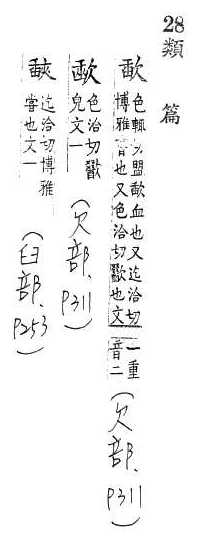 28 類篇
歃 色輒切盟歃血也又迄洽切
博雅嘗也又色洽切歠也文
一重
音二
(欠部、P311)
色洽切歠
皃文一
(欠部、P311)
迄洽切博雅
嘗也文一
(臼部、P253)